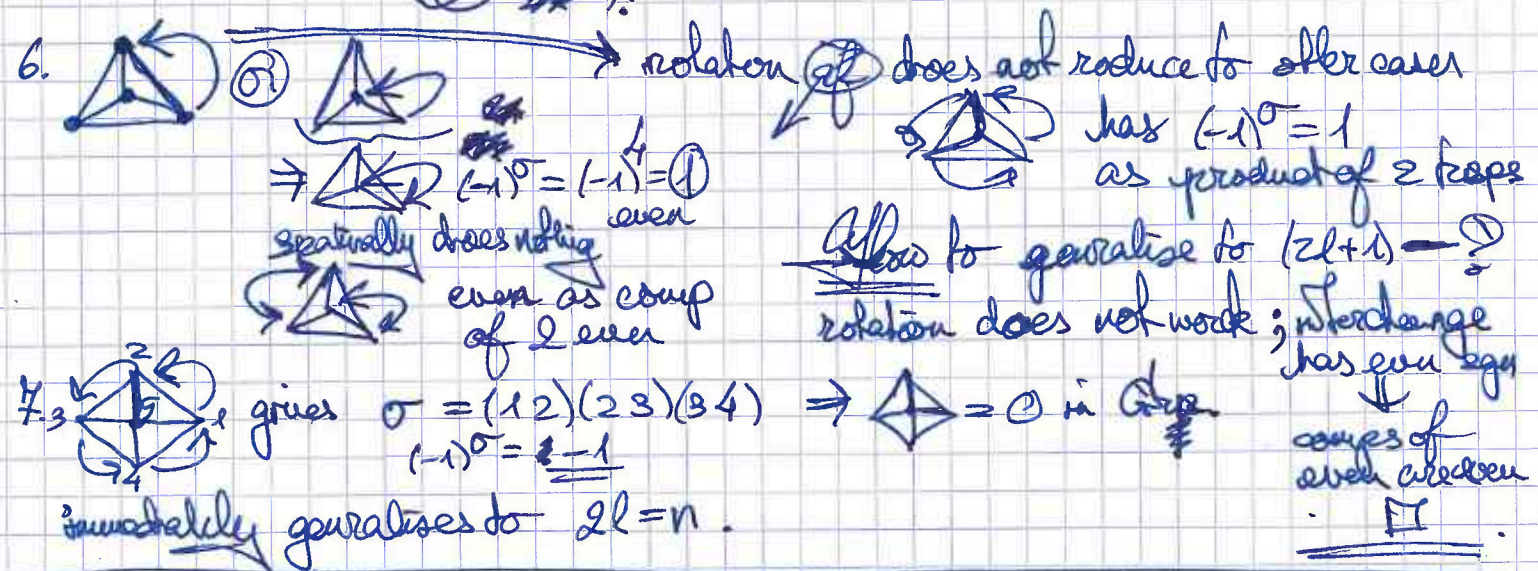 6. or rotation of does not reduce to other cases
has (-1)^σ = 1
as product of 2 trsps
⇒ (-1)^σ = (-1)^4 = 1
even
spatially does nothing
even as comp
of 2 even
How to generalise to (2l+1) — ?
rotation does not work ; interchange
has even sgn
⇓
comps of
even are even
□
7. 2 3 5 1 4 gives σ = (12)(23)(34) ⇒ = 0 in
(-1)^σ = -1
immediately generalises to 2l = n.